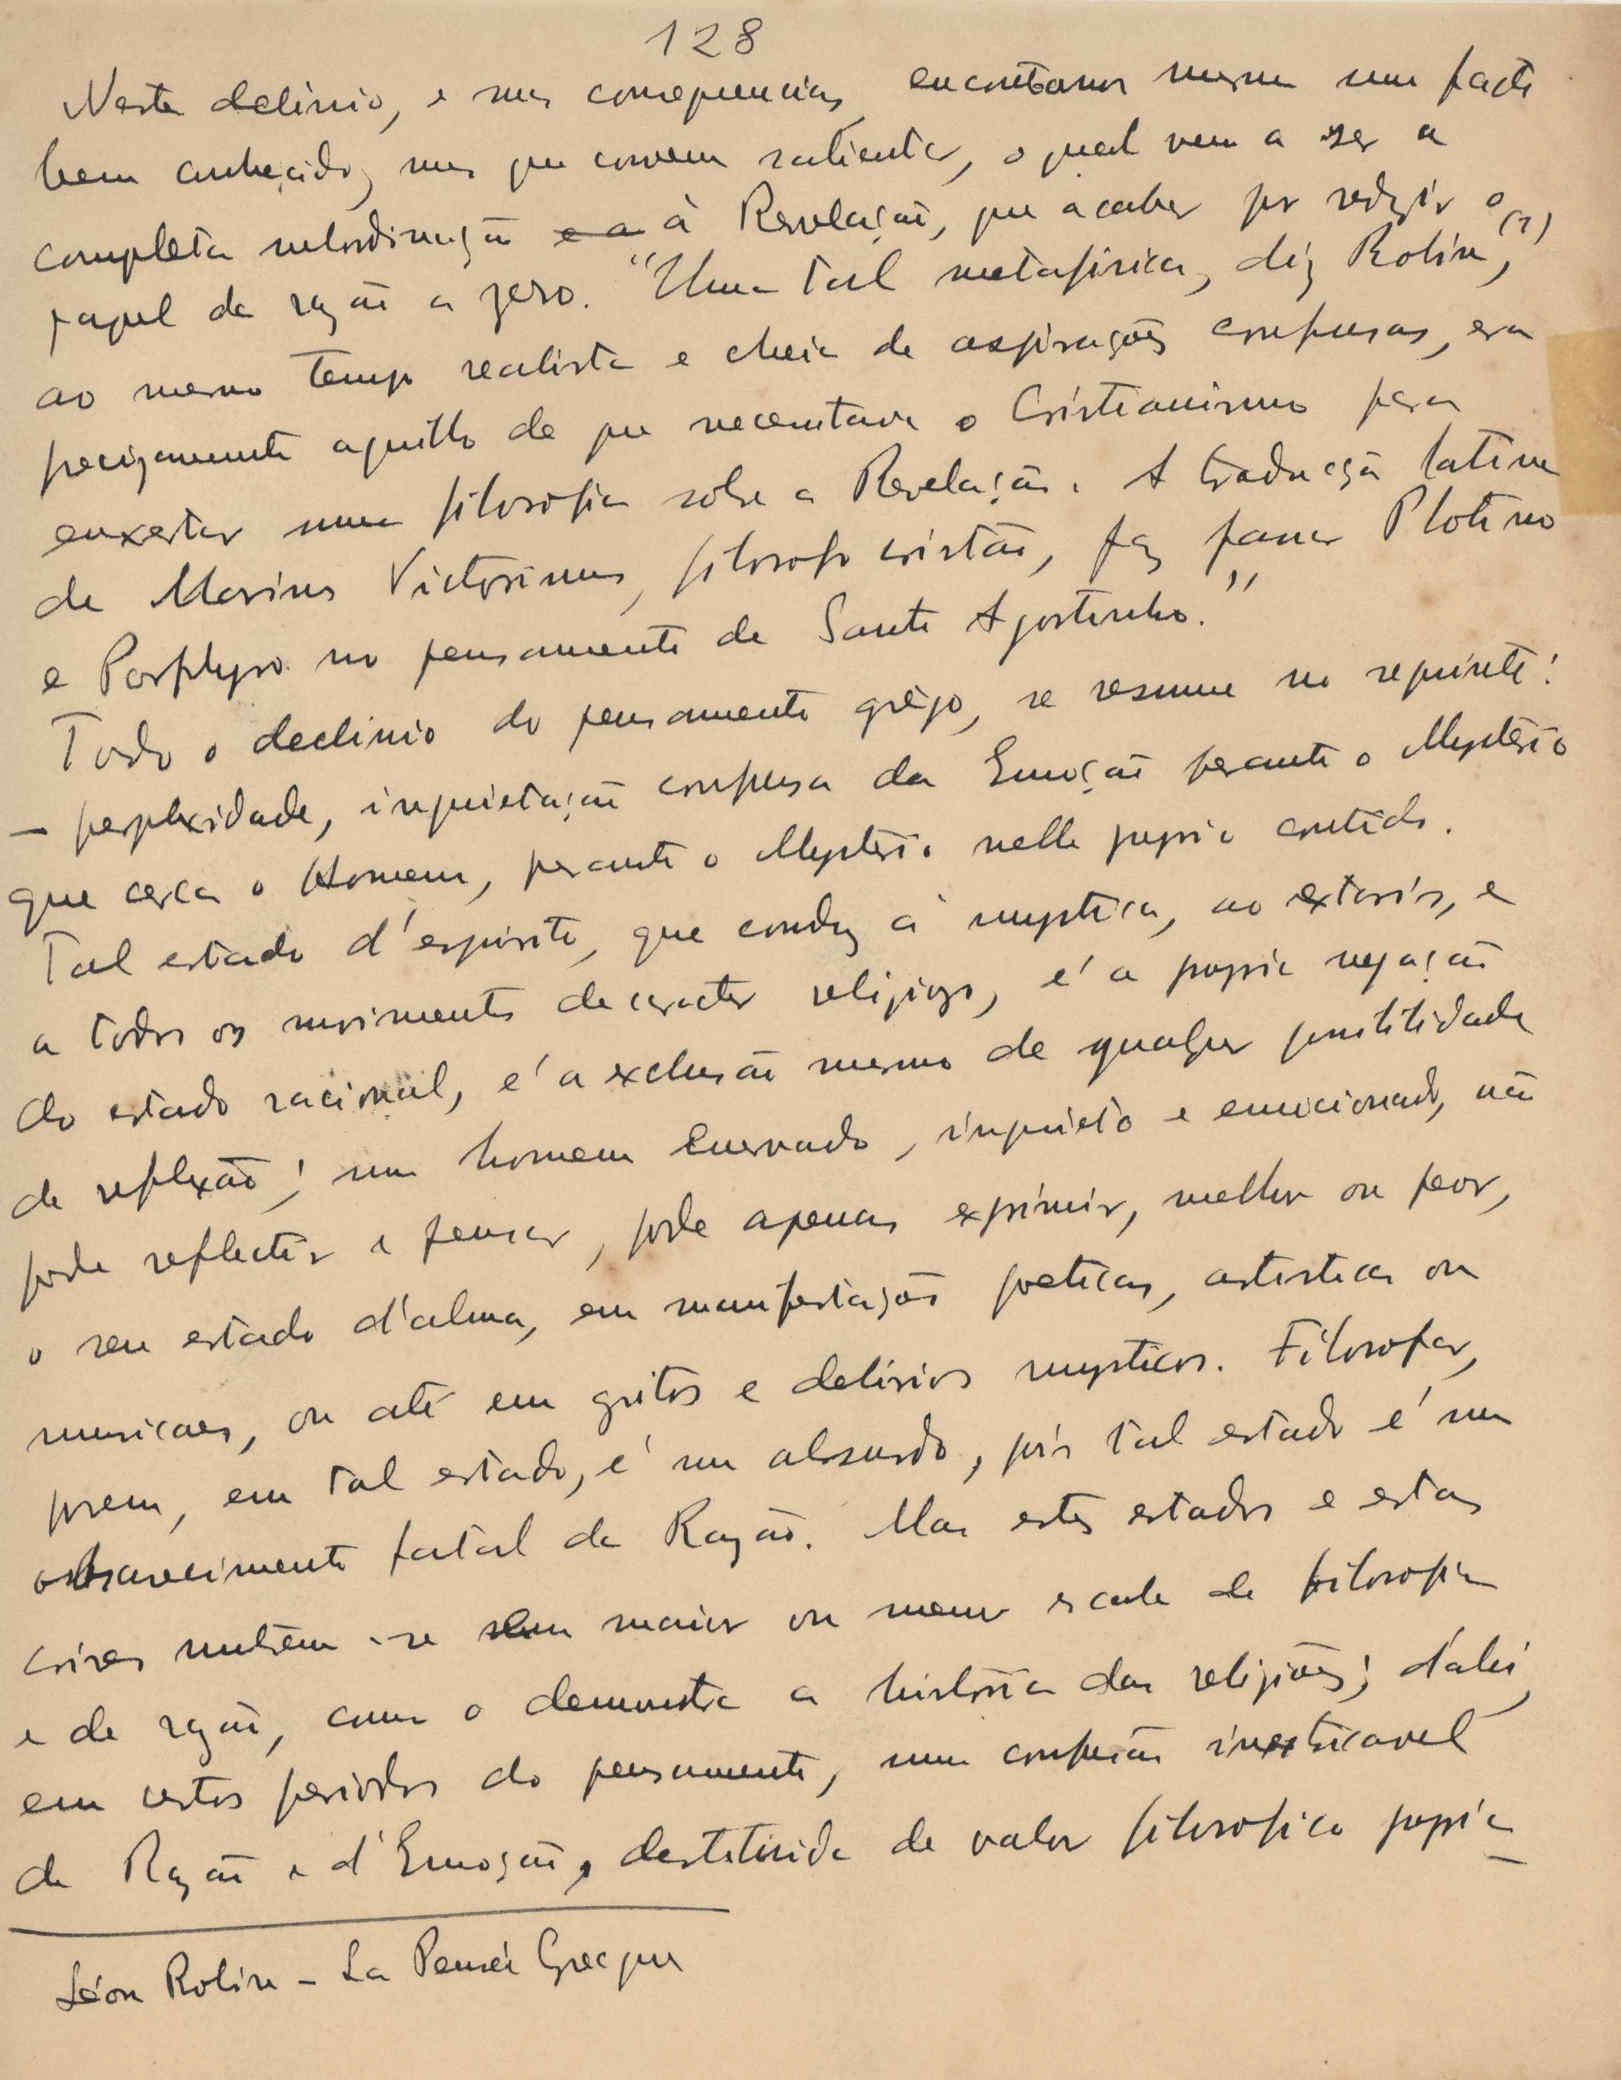 128
Neste declinio, e suas consequencias, encontramos mesmo um facto
bem conhecido, mas que convem salientar, o qual vem a ser a
completa subordinação e a à Revelação, que acabou por reduzir o
papel da razão a zero. "Uma tal metafisica, diz Robin, (1)
ao mesmo tempo realista e cheia de aspirações confusas, era
precizamente aquillo de que necessitava o Cristianismo para
enxertar uma filosofia sobre a Revelação. A traducção latina
de Marius Victorinus, filosofo cristão, faz passar Plotino
e Porphyro no pensamento de Santo Agostinho."
Todo o declinio do pensamento grêgo, se resume no seguinte:
— perplexidade, inquietação confusa da Emoção perante o Mysterio
que cerca o Homem, perante o Mysterio nelle proprio contido.
Tal estado d'espirito, que conduz á mystica, ao extasis, e
a todos os movimentos de caracter religiozo, é a propria negação
do estado racional, é a exclusão mesmo de qualquer possibilidade
de reflexão; um homem enervado, inquieto e emocionado, não
pode reflectir e pensar, pode apenas exprimir, melhor ou peor,
o seu estado d'alma, em manifestações poeticas, artisticas ou
musicaes, ou até em gritos e delirios mysticos. Filosofar,
porem, em tal estado, é um absurdo, pois tal estado é um
obscurecimento fatal da Razão. Mas estes estados e estas
crises nutrem-se em maior ou menor escala de filosofia
e de razão, como o demonstra a historia das religiões; d'ahi,
em certos periodos do pensamento, uma confusão inextricavel
da Razão e d'Emoção, destituida de valor filosofico propria-
Léon Robin – La Pensée Grecque